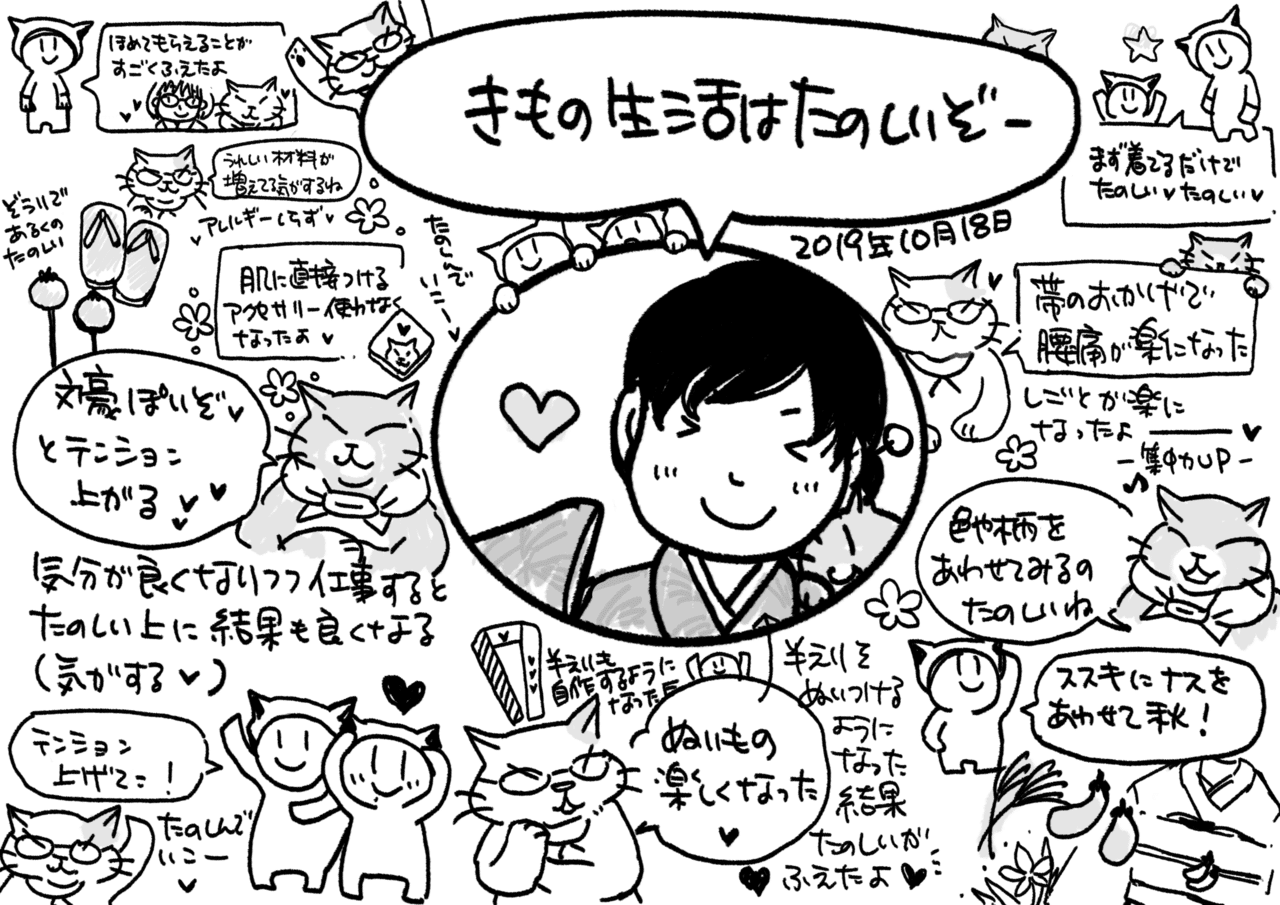 きもの生活はたのしいぞー
2019年10月18日
ほめてもらえることが
すごくふえたよ
うれしい材料が
増えてる気がするね
アレルギーしらず
ぞうりで
あるくの
たのしい
肌に直接つける
アクセサリー使わなく
なったよ
たのしんで
いこー
文豪ぽいぞ
とテンション
上がる
気分が良くなりつつ仕事すると
たのしい上に結果も良くなる
(気がする)
テンション
上げてこ!
たのしんで
いこー
まず着てるだけで
たのしいたのしい
帯のおかげで
腰痛が楽になった
しごとが楽に
なったよ
-集中力UP-
色や柄を
あわせてみるの
たのしいね
ススキにナスを
あわせて秋!
半えりも
自作するように
なったよ
ぬいもの
楽しくなった
半えりを
ぬいつける
ように
なった
結果
たのしいが
ふえたよ